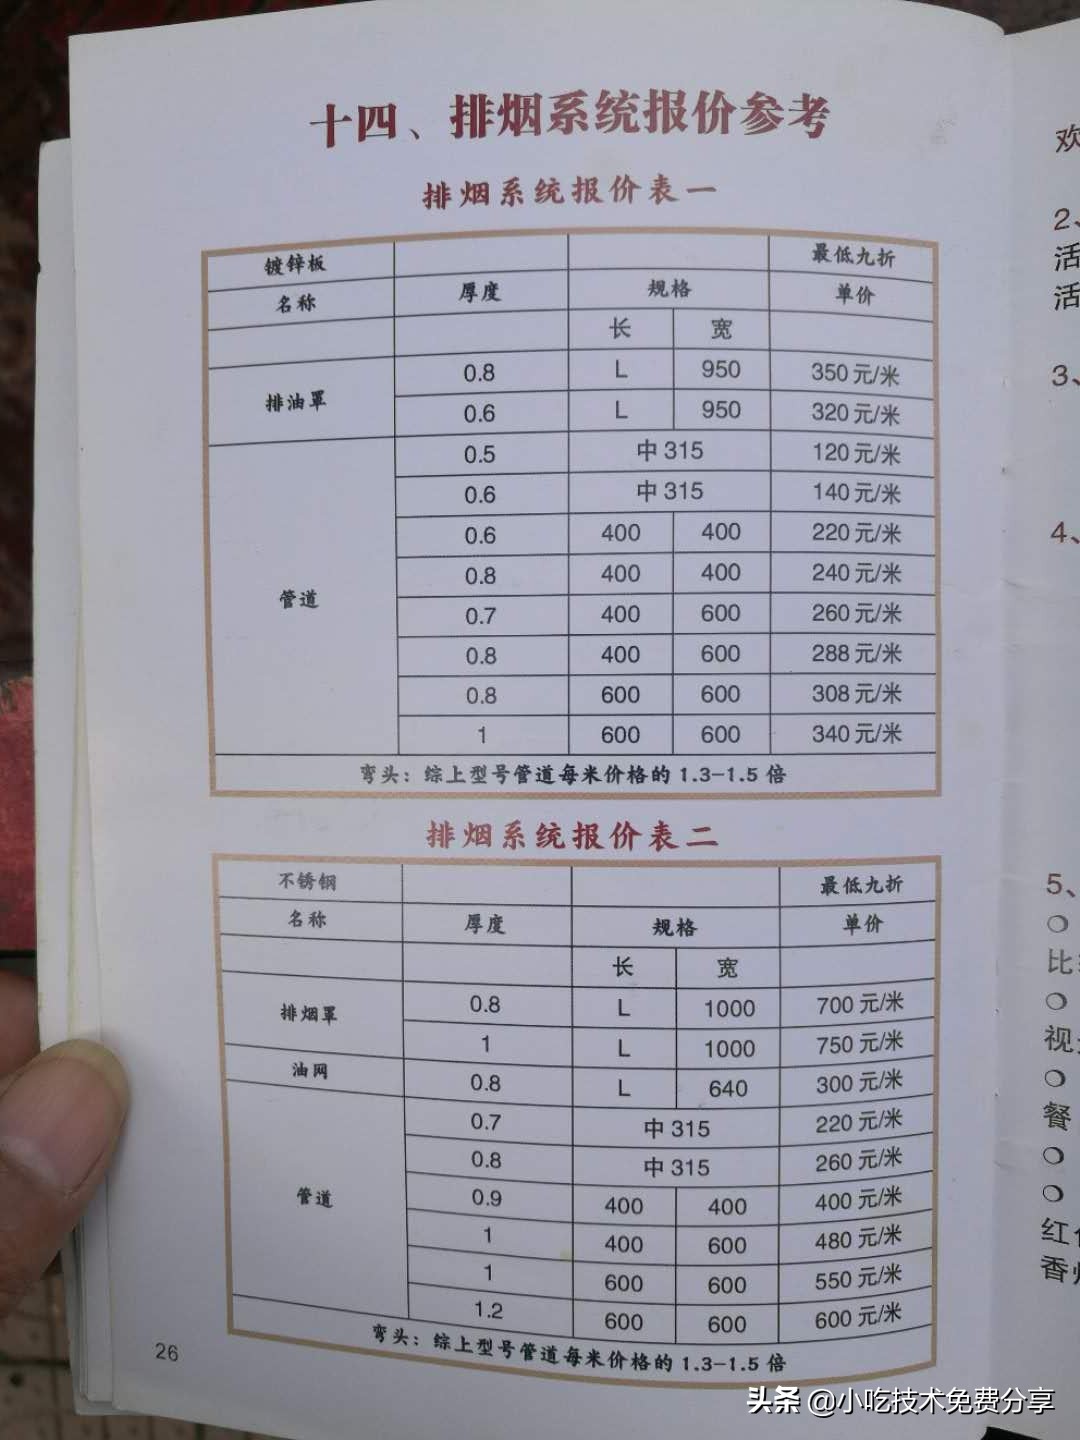 十四、排烟系统报价参考
排烟系统报价表一
镀锌板 最低九折
名称 厚度 规格 单价
长 宽
排油罩 0.8 L 950 350元/米
0.6 L 950 320元/米
管道 0.5 中315 120元/米
0.6 中315 140元/米
0.6 400 400 220元/米
0.8 400 400 240元/米
0.7 400 600 260元/米
0.8 400 600 288元/米
0.8 600 600 308元/米
1 600 600 340元/米
弯头：综上型号管道每米价格的1.3-1.5倍
排烟系统报价表二
不锈钢 最低九折
名称 厚度 规格 单价
长 宽
排烟罩 0.8 L 1000 700元/米
1 L 1000 750元/米
油网 0.8 L 640 300元/米
管道 0.7 中315 220元/米
0.8 中315 260元/米
0.9 400 400 400元/米
1 400 600 480元/米
1 600 600 550元/米
1.2 600 600 600元/米
弯头：综上型号管道每米价格的1.3-1.5倍
26
欢
2、
活
活
3、
4、
5、
比
视
餐
红
香
头条 @小吃技术免费分享